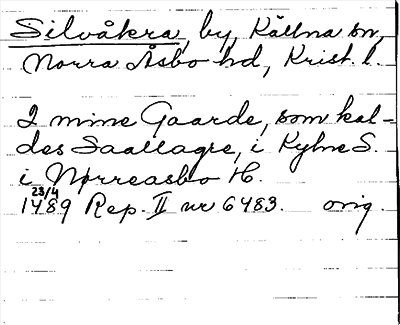 Silvåkra, by, Källna sn,
Norra Åsbo hd, Krist. l.
2 mine Gaarde, som kal-
des Saallagre, i Kylne S.
i Nørreasbo H.
23/4
1489 Rep. II nr 6483. orig.